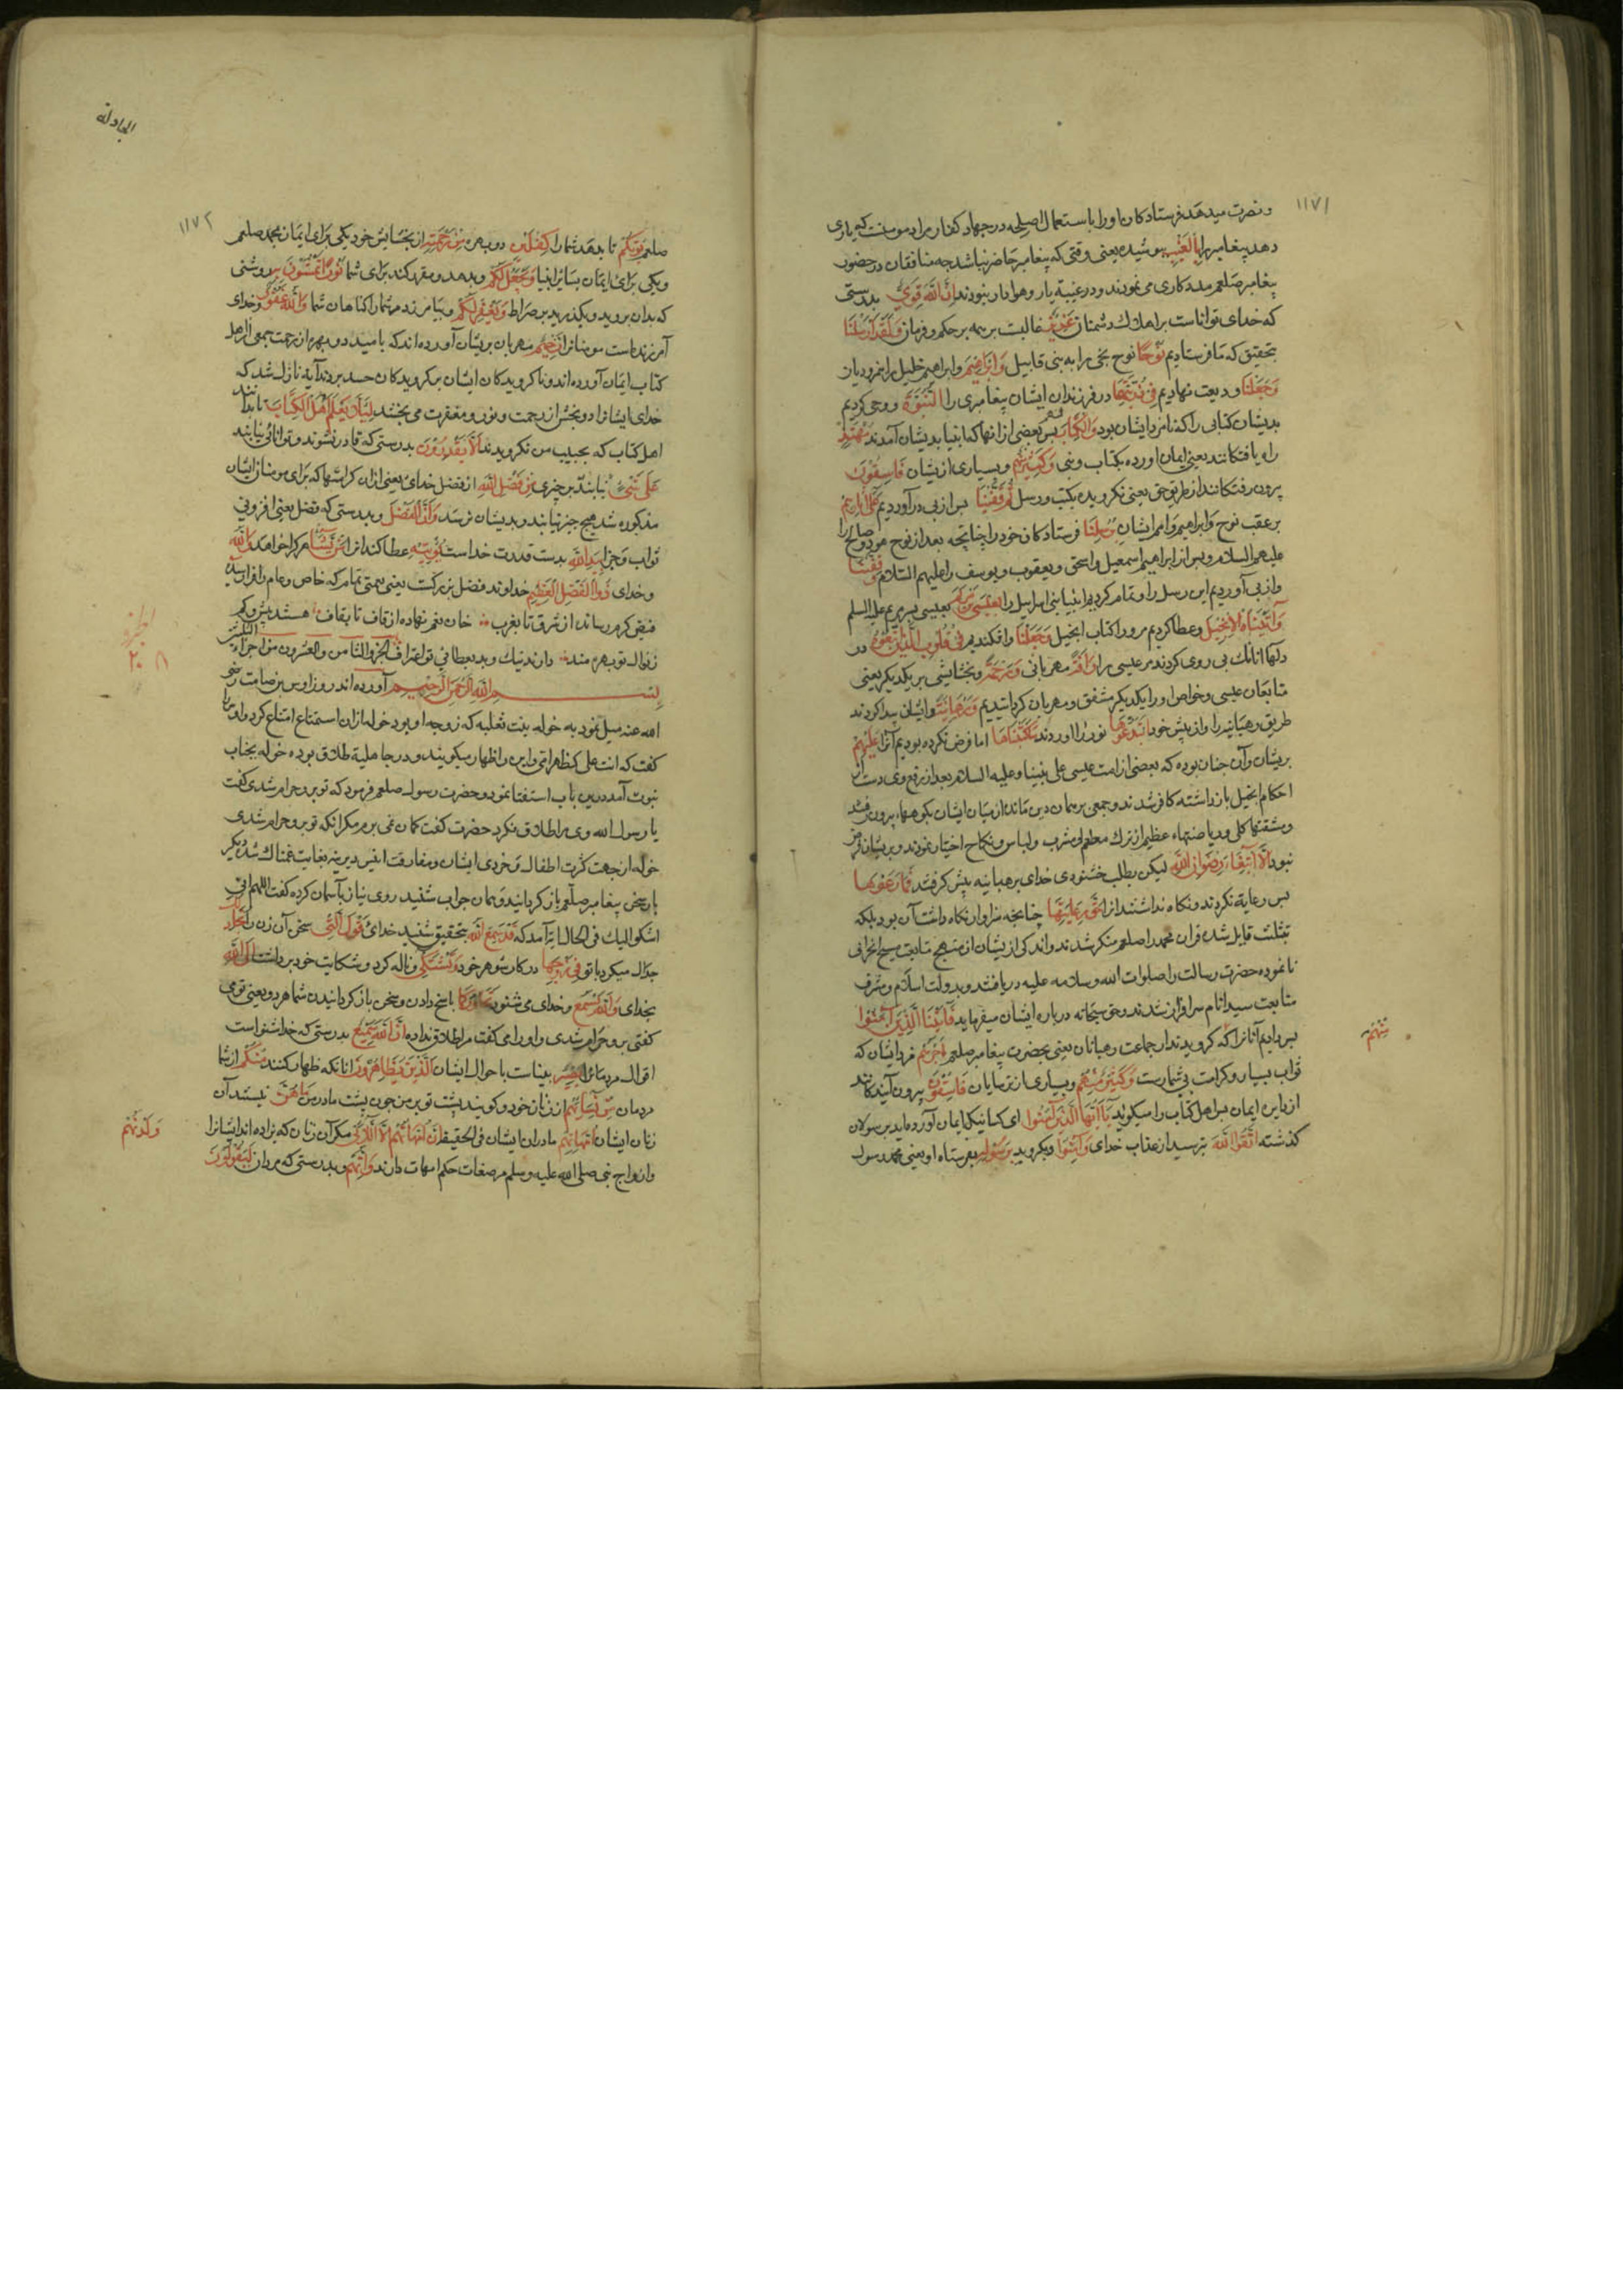 ۱۱۷۱
و نصرت میدهد فرستادکان او را باستعمال اصلحه در جهاد کفار مراد مومنست که یاری
دهد پیغامبر را بِالْغَیْبِ پوشیده یعنی وقتی که پیغامبر حاضر نباشد چه منافقان در حضور
پیغامبر صلعم مددکاری می نمودند و در غیبة یار و هوادار نبودند اِنَّ اللهَ قَوِیٌّ بدرستی
که خدای تواناست بر اهلاك دشمنان عَزِیزٌ غالبست بر همه بر حکم و فرمان وَلَقَدْ اَرْسَلْنَا
بتحقیق که ما فرستادیم نُوحًا نوح نجی را به بنی قابیل وَاِبْرَاهِیمَ و ابراهیم خلیل را بنمرودیان
وَجَعَلْنَا و ودیعت نهادیم فِی ذُرِّیَّتِهِمَا در فرزندان ایشان پیغامبری را النُّبُوَّةَ و وحی کردیم
بدیشان کتابی را که نامزد ایشان بود وَالْکِتَابَ پس بعضی از انها که انبیا بدیشان آمدند مُهْتَدٍ
راه یافتکانند یعنی ایمان اورده بکتاب و نبی وَکَثِیرٌ مِنْهُمْ و بسیاری از یشان فَاسِقُونَ
بیرون رفتکانند از طریق حق یعنی نکرویده بکتب و رسل ثُمَّ قَفَّیْنَا پس از پی در آوردیم عَلٰی اٰثَارِهِمْ
بر عقب نوح و ابراهیم و امم ایشان بِرُسُلِنَا فرستادکان خود را چنانچه بعد از نوح هود و صالح را
علیهم السلام و پس از ابراهیم اسمعیل و اسحق و یعقوب و یوسف را علیهم السلام وَقَفَّیْنَا
و از پی آوردیم این رسل را و تمام کردیم انبیا بنی اسرایل را بِعِیسَی بْنِ مَرْیَمَ بعیسی پسر مریم علیه السلم
وَاٰتَیْنَاهُ الْاِنْجِیلَ و عطا کردیم مر و را کتاب انجیل وَجَعَلْنَا و افکندیم فِی قُلُوبِ الَّذِینَ اتَّبَعُوهُ در
دلهاء انانك پی روی کردند مر عیسی را رَاْفَةً مهربانی وَرَحْمَةً و بخشایشی بر یکدیکر یعنی
متابعان عیسی و خواص او را یکدیکر مشفق و مهربان کردانیدیم وَرَهْبَانِیَّةً و ایشان پیدا کردند
طریق رهبانیه را و از پیش خود ابْتَدَعُوهَا نو در اوردند مَا کَتَبْنَاهَا اما فرض نکرده بودیم آنرا عَلَیْهِمْ
بریشان و آن چنان بوده که بعضی از امت عیسی علی نبینا و علیه السلام بعد از رفع وی دست از
احکام انجیل بازداشته کافر شدند و جمعی بر همان دین مانده از میان ایشان بکوهها بیرون رفتند
و مشقتها کلی و ریاضتهاء عظیم از ترك مطعم و مشرب و لباس و نکاح اختیار نمودند و بریشان فرض
نبود اِلَّا ابْتِغَاءَ رِضْوَانِ اللهِ لیکن بطلب خشنودی خدای برهبانیه پیش کرفتند فَمَا رَعَوْهَا
پس رعایة نکردند و نکاه نداشتند انرا حَقَّ رِعَایَتِهَا چنانچه سزاوار نکاه داشت آن بود بلکه
بتثلث قایل شده قران محمد را صلعم منکر شدند و اندکی از یشان از منهج متابعت مسیح انحرافی
نا نموده حضرت رسالت را صلوات الله و سلامه علیه دریافتند و بدولت اسلام و شرف
متابعت سید انام سرافراز شدند و حق سبحانه در باره ایشان میفرماید فَاٰتَیْنَا الَّذِینَ اٰمَنُوا
پس دادیم آنانرا که کرویدند از جماعت رهبانان یعنی بحضرت پیغامبر صلعم اَجْرَهُمْ مزد ایشان که
مِنْهُمْ
ثواب بسیار و کرامت بی شمارست وَکَثِیرٌ مِنْهُمْ و بسیاری از ترسایان فَاسِقُونَ بیرون آیندکانند
از دایره ایمان مر اهل کتاب را میکوید یَا اَیُّهَا الَّذِینَ اٰمَنُوا ای کسانیکه ایمان آورده اید برسولان
کذشته اتَّقُوا اللهَ بترسید از عذاب خدای وَاٰمِنُوا و بکروید بِرَسُولِهِ بفرستاده او یعنی محمد رسول
المجادلة
۱۱۷۲
صلعم یُؤْتِکُمْ تا بدهد شما را کِفْلَیْنِ دو بهره مِنْ رَحْمَتِهِ از بخشایش خود یکی برای ایمان بمحمد صلعم
و یکی برای ایمان بسائر انبیا وَیَجْعَلْ لَکُمْ و بدهد و مقرر کند برای شما نُورًا تَمْشُونَ بِهِ روشنی
که بدان بروید و بکذرید بر صراط وَیَغْفِرْ لَکُمْ و بیامرزد مر شما را کناهان شما وَاللهُ غَفُورٌ و خدای
آمرزنده است مومنانرا رَحِیمٌ مهربان بریشان آورده اند که بامید دو بهره از رحمت جمعی از اهل
کتاب ایمان آورده اند و ناکرویدکان ایشان بر کرویدکان حسد بردند آیة نازل شد که
خدای ایشانرا دو بخش از رحمت و نور و مغفرت می بخشد لِئَلَّا یَعْلَمَ اَهْلُ الْکِتَابِ تا بدانند
اهل کتاب که بحبیب من نکرویدند اَلَّا یَقْدِرُونَ بدرستی که قادر نشوند و توانائی نیابند
عَلٰی شَیْءٍ نیابند بر چیزی مِنْ فَضْلِ اللهِ از فضل خدای یعنی ازان کرامتها که برای مومنان ازیشان
مذکوره شد هیچ چیز نیابند و بدیشان نرسد وَاَنَّ الْفَضْلَ و بدرستی که فضل یعنی افزونی
ثواب و جزا بِیَدِ اللهِ بدست قدرت خداست یُؤْتِیهِ عطا کند انرا مَنْ یَشَاءُ هر کرا خواهد وَاللهُ
و خدای ذُو الْفَضْلِ الْعَظِیمِ خداوند فضل بزرکست یعنی نعمتی تمام که خاص و عام را فرا رسیده
فیض کرم رسانده از شرق تا بغرب خان نعم نهاده از قاف تا بقاف هستند بیش و کم
ز نوال تو بهره مند دارند نیك و بد بعطاء تو اعتراف الجزو الثامن والعشرون من اجزاء الثلثین
الجزؤ
۲۸
بِسْمِ اللهِ الرَّحْمٰنِ الرَّحِیمِ آورده اند روزی اوس بن صامت رضی
الله عنه میل نمود به خوله بنت ثعلبه که زوجه او بود خوله ازان استمتاع امتناع کرد و اوس
کفت که انت علی کظهر امی و این را ظهار میکویند و در جاهلیة طلاق بوده خوله بجناب
نبوت آمد درین باب استفتا نمود و حضرت رسول صلعم فرمود که تو برو حرام شدی کفت
یا رسول الله وی مرا طلاق نکرد حضرت کفت کمان نمی برم مکر انکه تو برو حرام شدی
خوله از جهت کثرت اطفال و خردی ایشان و مفارقت انیس دیرینه بغایت غمناك شد دیکر
باره سخن پیغامبر صلعم باز کردانید و همان جواب شنید روی نیاز بآسمان کرده کفت اللهم انی
اشکوا الیك فی الحال ایة آمد که قَدْ سَمِعَ اللهُ بتحقیق شنید خدای قَوْلَ الَّتِی سخن آن زن را تُجَادِلُكَ
جدال میکرد با تو فِی زَوْجِهَا در کار شوهر خود وَتَشْتَکِی و ناله کرد و شکایت خود برداشت اِلَی اللهِ
بخدای وَاللهُ یَسْمَعُ و خدای می شنود تَحَاوُرَکُمَا پاسخ دادن و سخن باز کردانیدن شما هر دو یعنی تو می
کفتی برو حرام شدی و او را می کفت مرا طلاق نداده اِنَّ اللهَ سَمِیعٌ بدرستی که خدا شنواست
اقوال مردمانرا بَصِیرٌ بیناست باحوال ایشان اَلَّذِینَ یُظَاهِرُونَ انانکه ظهار کنند مِنْکُمْ از شما
مردمان مِنْ نِسَائِهِمْ از زنان خود و کویند پشت تو بر من چون پشت مادر من مَا هُنَّ نیستند آن
زنان ایشان اُمَّهَاتِهِمْ مادران ایشان فی الحقیقه اِنْ اُمَّهَاتُهُمْ اِلَّا اللَّائِی مکر آن زنان که بزاده اند ایشانرا
وَلَدْنَهُمْ
و ازواج نبی صلی الله علیه و سلم مرضعات حکم امهات دارند وَاِنَّهُمْ و بدرستی که مردان لَیَقُولُونَ